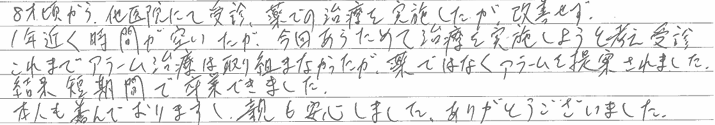 8才頃から、他医院にて受診、薬での治療を実施したが、改善せず。
1年近く時間が空いたが、今回あらためて治療を実施しようと考え受診
これまでアラーム治療は取り組まなかったが、薬ではなくアラームを提案されました。
結果短期間で卒業できました。
本人も喜んでおりますし、親も安心しました。ありがとうございました。